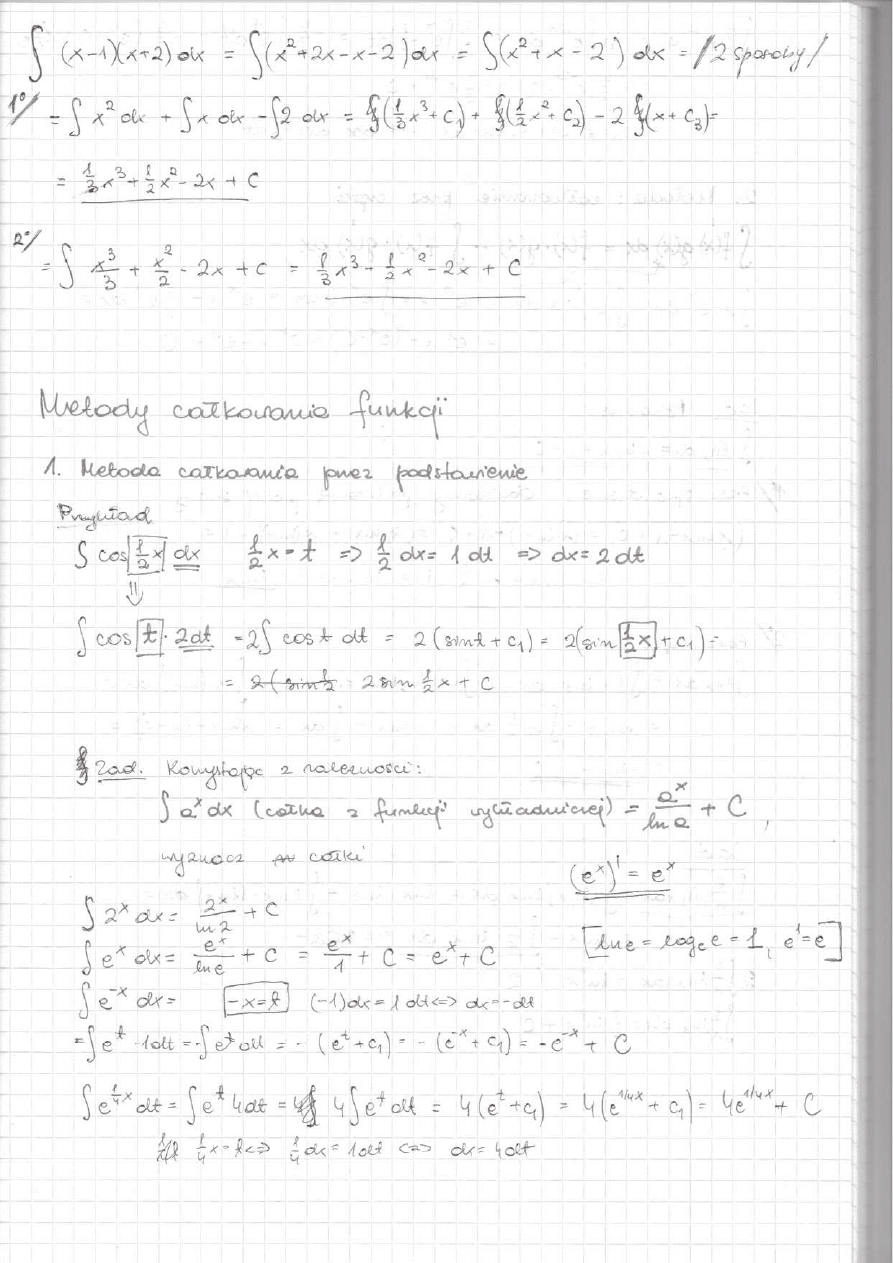 ∫ (x-1)(x+2) dx = ∫(x²+2x-x-2) dx = ∫(x²+x-2) dx = /2 sposoby/
1°/ = ∫ x² dx + ∫ x dx - ∫2 dx = (1/3 x³ + C₁) + (1/2 x² + C₂) - 2 (x + C₃) =
= 1/3 x³ + 1/2 x² - 2x + C
2°/
= ∫ x³/3 + x²/2 - 2x + C = 1/3 x³ + 1/2 x² - 2x + C
Metody całkowania funkcji
1. Metoda całkowania przez podstawienie
Przykład
∫ cos 1/2 x dx 1/2 x = t => 1/2 dx = 1 dt => dx = 2 dt
⇓
∫ cos t · 2dt = 2∫ cos t dt = 2 (sin t + C₁) = 2(sin 1/2 x + C₁) =
= 2 (sin 1/2 2 sin 1/2 x + C
Zad. Korzystając z należności:
∫ aˣ dx (całka z funkcji wykładniczej) = aˣ/ln a + C,
wyznacz całki
(eˣ)' = eˣ
∫ 2ˣ dx = 2ˣ/ln 2 + C
[ln e = logₑ e = 1, e¹ = e]
∫ eˣ dx = eˣ/ln e + C = eˣ/1 + C = eˣ + C
∫ e⁻ˣ dx = -x = t (-1) dx = 1 dt <=> dx = -dt
= ∫ eᵗ · -1dt = -∫ eᵗ dt = - (eᵗ + C₁) = - (e⁻ˣ + C₁) = -e⁻ˣ + C
∫ e^(1/4 x) dt = ∫ eᵗ 4dt = 4 ∫ eᵗ dt = 4 (eᵗ + C₁) = 4(e^(1/4 x) + C₁) = 4e^(1/4 x) + C
1/4 x = t <=> 1/4 dx = 1dt <=> dx = 4dt